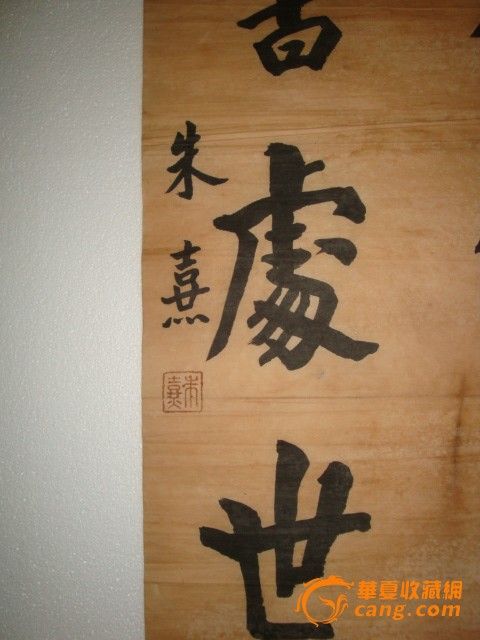 處世
朱熹
朱熹
華夏收藏網
cang.com